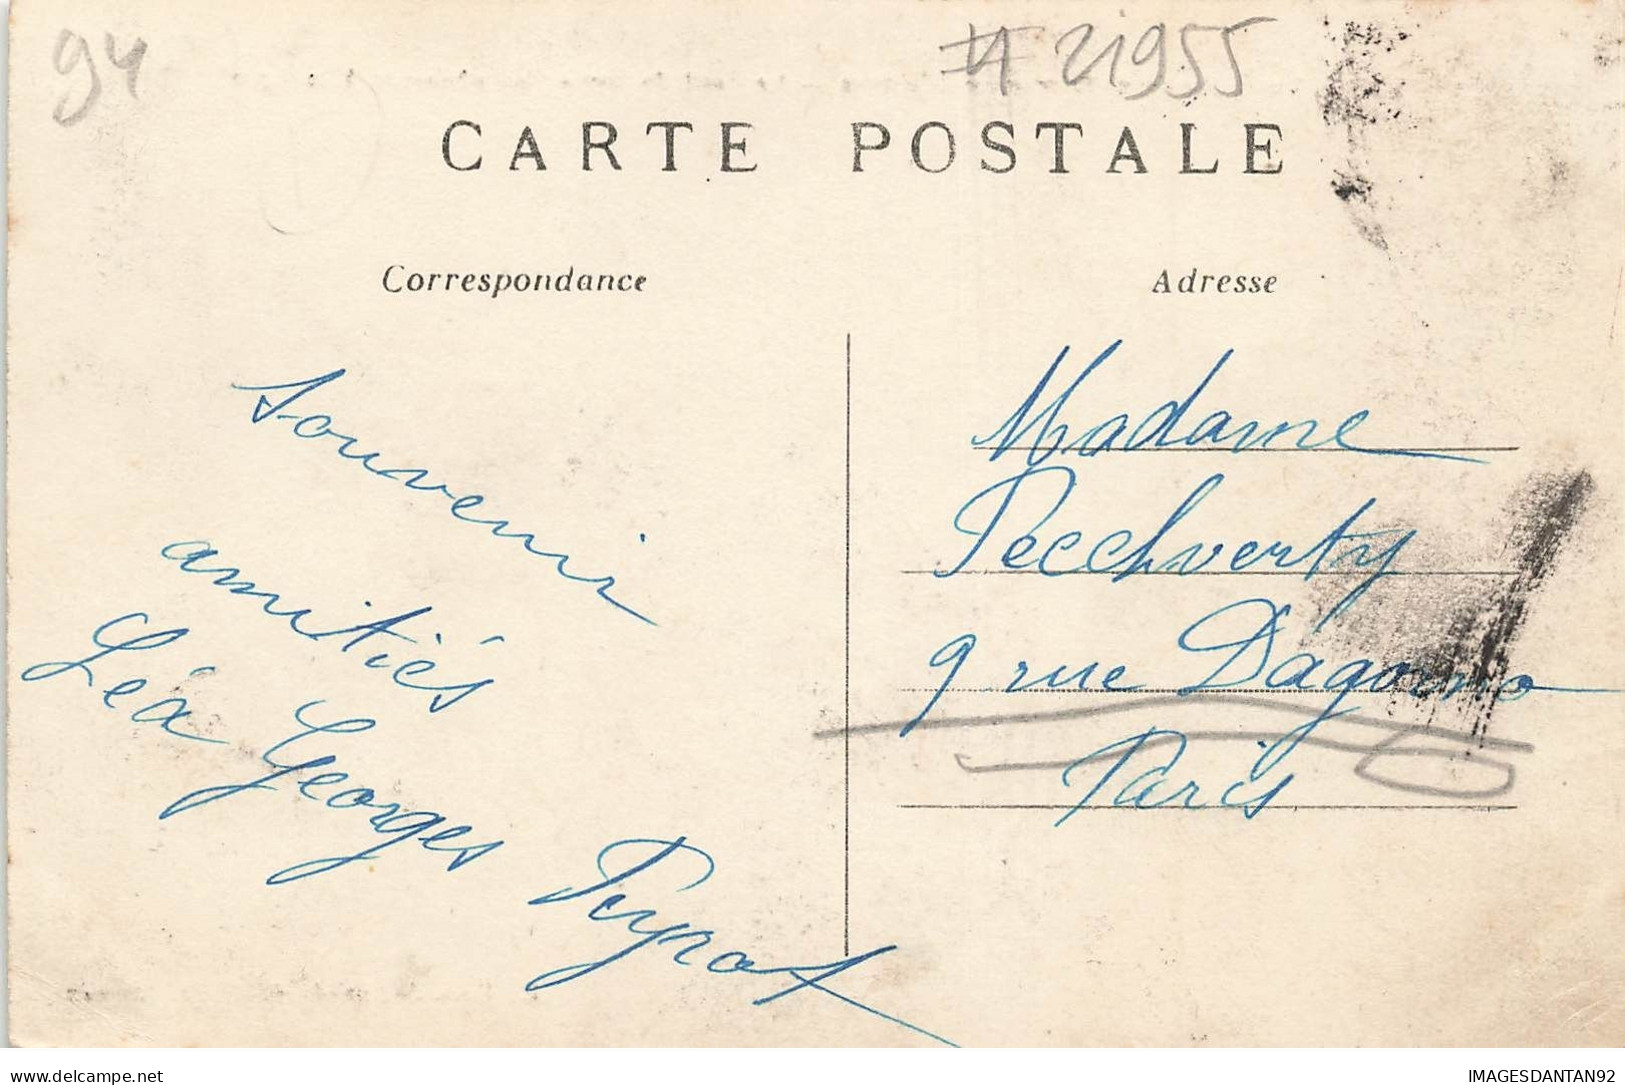 94
# 21955
CARTE POSTALE
Correspondance
Adresse
Souvenir
amitiés
Léa Georges Peyrat
Madame
Pecchverty
9 rue Dagorno
Paris
delcampe.net
IMAGESDANTAN92